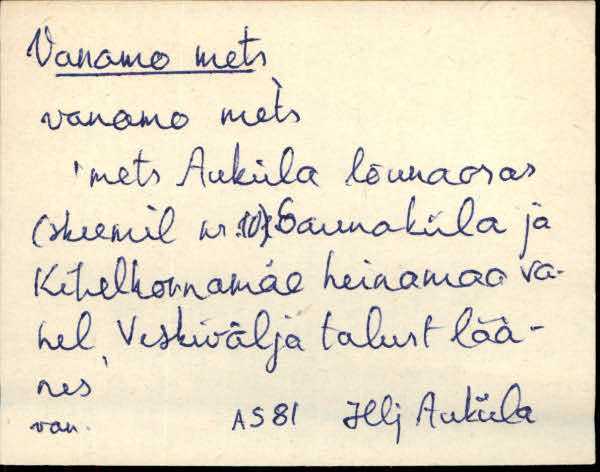 Vanamo mets
vanamo mets
'mets Auküla lõunaosas
(skeemil nr. 10), Saunaküla ja
Kihelkonnamäe heinamaa va-
hel, Veskivälja talust lää-
nes'
van. AS 81 Hlj Auküla